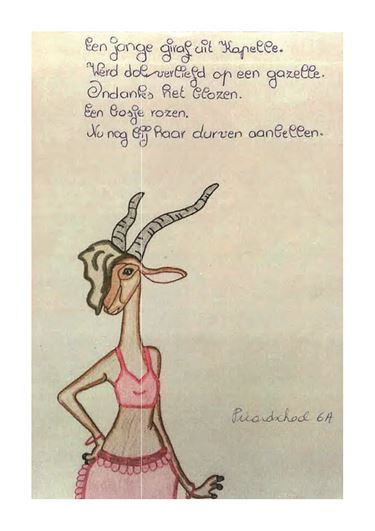 Een jonge giraf uit Kapelle.
Werd dolverliefd op een gazelle.
Ondanks het blozen.
Een bosje rozen.
Nu nog bij haar durven aanbellen.
6A